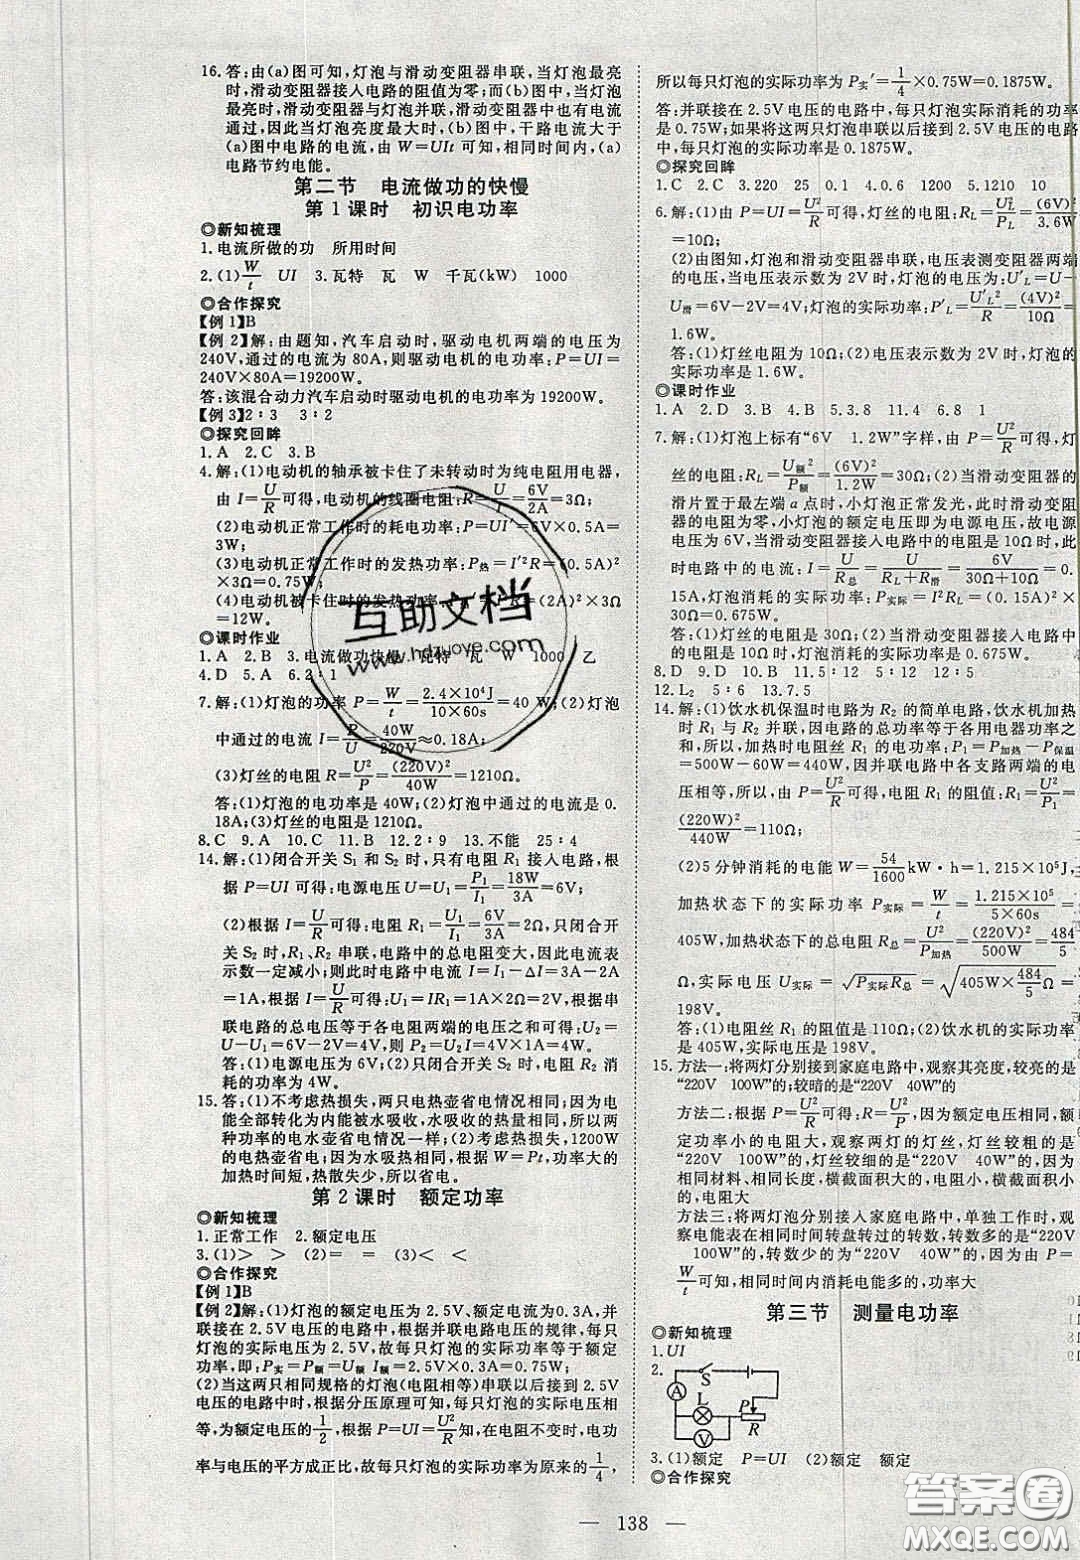 16.答:由(a)图可知,灯泡与滑动变阻器串联,当灯泡最亮
时,滑动变阻器接入电路的阻值为零;而(b)图中,当灯泡
最亮时,滑动变阻器与灯泡并联,滑动变阻器中也有电流
通过,因此当灯泡亮度最大时,(b)图中,干路电流大于
(a)图中电路的电流,由 W=UIt 可知,相同时间内,(a)
电路节约电能。
第二节 电流做功的快慢
第1课时 初识电功率
◎新知梳理
1.电流所做的功 所用时间
2.(1)W/t UI 3.瓦特 瓦 W 千瓦(kW) 1000
◎合作探究
【例1】B
【例2】解:由题知,汽车启动时,驱动电机两端的电压为
240V,通过的电流为80A,则驱动电机的电功率:P=UI=
240V×80A=19200W。
答:该混合动力汽车启动时驱动电机的电功率为19200W。
【例3】2:3 3:2
◎探究回眸
1.A 2.C 3.B
4.解:(1)电动机的轴承被卡住了未转动时为纯电阻用电器,
由 I=U/R可得,电动机的线圈电阻:R=U/I=6V/2A=3Ω;
(2)电动机正常工作时的耗电功率:P=UI′=6V×0.5A=
3W;
(3)电动机正常工作时的发热功率:P热=I′²R=(0.5A)²
×3Ω=0.75W;
(4)电动机被卡住时的发热功率:R=(2A)²×3Ω
=12W。
◎课时作业
1.A 2.B 3.电流做功快慢 瓦特 瓦 W 1000 乙
4.D 5.A 6.2:1
7.解:(1)灯泡的功率 P=W/t=2.4×10⁴J/10×60s=40 W;(2)灯泡
中通过的电流 I=P/U=40W/220V≈0.18A;
(3)灯丝的电阻 R=U²/P=(220V)²/40W=1210Ω。
答:(1)灯泡的电功率是40W;(2)灯泡中通过的电流是0.
18A;(3)灯丝的电阻是1210Ω。
8.C 9.A 10.C 11.B 12.2:9 13.不能 25:4
14.解:(1)闭合开关 S₁ 和 S₂ 时,只有电阻 R₁ 接入电路,根
据 P=UI 可得:电源电压 U=U₁=P₁/I₁=18W/3A=6V;
(2)根据 I=U/R可得:电阻 R₁=U₁/I₁=6V/3A=2Ω;只闭合开
关 S₂ 时,电阻 R₁、R₂ 串联,电路中的总电阻变大,因此电流表
示数一定减小;则此时电路中电流 I=I₁-ΔI=3A-2A
=1A,根据 I=U/R可得:U₁=IR₁=1A×2Ω=2V,根据串
联电路的总电压等于各电阻两端的电压之和可得:U₂=
U-U₁=6V-2V=4V,则 P₂=U₂I=4V×1A=4W。
答:(1)电源电压为6V;(2)只闭合开关 S₂ 时,电阻 R₂ 消
耗的功率为4W。
15.答:(1)不考虑热损失,两只电热壶省电情况相同;因为电
能全部转化为内能被水吸收,水吸收的热量相同,所以两
种功率的电水壶省电情况一样;(2)考虑热损失,1200W
的电热壶省电;因为水吸热相同,根据 W=Pt,功率大的
加热时间短,热散失少,所以省电。
第2课时 额定功率
◎新知梳理
1.正常工作 2.额定电压
3.(1)> > (2)= = (3)< <
◎合作探究
【例1】B
【例2】解:(1)灯泡的额定电压为2.5V、额定电流为0.3A,并
联接在2.5V电压的电路中,根据并联电路电压的规律,每只
灯泡的实际电压为2.5V,故每只灯泡的实际功率等于额定功
率,即:P实=P额=U额I额=2.5V×0.3A=0.75W;
(2)当这两只相同规格的灯泡(电阻相等)串联以后接到2.5V
的电路中时,根据分压原理可知,每只灯泡的实际电压相
等,为额定电压的1/2,根据 P=UI=U²/R可知,在电阻不变时,电功
率与电压的平方成正比,故每只灯泡的实际功率为原来的1/4,
所以每只灯泡的实际功率为 P实′=1/4×0.75W=0.1875W。
答:并联接在2.5V电压的电路中,每只灯泡实际消耗的功率
是0.75W;如果将这两只灯泡串联以后接到2.5V的电路
中,每只灯泡的实际功率是0.1875W。
◎探究回眸
1.C 2.C 3.220 25 0.1 4.60 36 5.1210 10
6.解:(1)由 P=UI=U²/R可得,灯丝电阻:R_L=U_L²/P_L=(6V)²/3.6W
=10Ω;
(2)由图知,灯泡和滑动变阻器串联,电压表测变阻器两端
的电压,当电压表示数为2V时,灯泡的电压为:U′_L=U
-U滑=6V-2V=4V,灯泡的实际功率:P′_L=U′_L²/R=(4V)²/10Ω=
1.6W。
答:(1)灯丝电阻为10Ω;(2)电压表示数为2V时,灯泡的
实际功率是1.6W。
◎课时作业
1.A 2.D 3.B 4.B 5.3.8 11.4 6.8 1
7.解:(1)灯泡上标有“6V 1.2W”字样,由 P=U²/R可得,灯
丝的电阻:R_L=U额²/P额=(6V)²/1.2W=30Ω;(2)当滑动变阻器的
滑片置于最左端 a 点时,小灯泡正常发光,此时滑动变阻
器的电阻为零,小灯泡的额定电压即为电源电压,故电源
电压为6V,当滑动变阻器接入电路中的电阻是10Ω时,此
时电路中的电流:I=U/R总=U/R_L+R滑=6V/30Ω+10Ω=0.
15A,灯泡消耗的实际功率:P实际=I²R_L=(0.15A)²×
30Ω=0.675W。
答:(1)灯丝的电阻是30Ω;(2)滑动变阻器接入电路中的
电阻是10Ω时,灯泡消耗的实际功率是0.675W。
8.D 9.D 10.B 11.5:12 12:5
12.L₂ 5:6 13.7.5
14.解:(1)饮水机保温时电路为 R₂ 的简单电路,饮水机加热
时 R₁ 与 R₂ 并联,因电路的总功率等于各用电器功率之
和,所以,加热时电阻丝 R₁ 的功率:P₁=P加热-P保温
=500W-60W=440W,因并联电路中各支路两端的电
压相等,所以,由 P=UI=U²/R可得,电阻 R₁ 的阻值:R₁=U²/P₁=
(220W)²/440W=110Ω;
(2)5分钟消耗的电能 W=54/1600kW·h=1.215×10⁵J,
加热状态下的实际功率 P实际=W/t=1.215×10⁵/5×60s=
405W,加热状态下的总电阻 R总=U²/P加热=(220V)²/500W=484/5
Ω,实际电压 U实际=√P实际R总=√405W×484/5Ω=
198V。
答:(1)电阻丝 R₁ 的阻值是110Ω;(2)饮水机的实际功率
是405W,实际电压是198V。
15.方法一:将两灯分别接到家庭电路中,观察其亮度,较亮的是
“220V 100W”的;较暗的是“220V 40W”的
方法二:根据 P=U²/R可得:R=U²/P,因为额定电压相同,额
定功率小的电阻大,观察两灯的灯丝,灯丝较粗的是
“220V 100W”的,灯丝较细的是“220V 40W”的,因为在
相同材料、相同长度的情况下,粗灯丝电阻小,细灯丝
电阻大
方法三:将两灯泡分别接入家庭电路中,单独工作时,观
察电能表在相同时间转盘转过的转数,转数多的为“220V
100W”的,转数少的为“220V 40W”的。因为由 P=
W/t可知,相同时间内消耗电能多的,功率大
第三节 测量电功率
◎新知梳理
1.UI
2.
S
A
L
P
V
R
3.(1)额定 P=UI (2)额定 额定
◎合作探究
— 138 —
互助文档
www.hdzuoye.com
答案圈
MXQE.COM